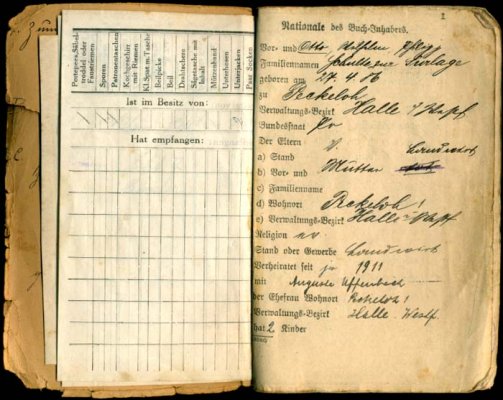 Portepee, Säbel-
troddel oder
Faustriemen
Sporen
Patronentaschen
Kochgeschirr
mit Riemen
Kl. Spat. m. Tasche
Beilpicke
Beil
Drahtschere
Sägetasche mit
Inhalt
Mützenband
Unterhosen
Unterjacken
Paar Socken
Ist im Besitz von:
Hat empfangen:
1
Nationale des Buch-Inhabers.
Vor- und Otto
Familiennamen Schulte zur
geboren am 27. 4. 86
zu Rakeloh
Verwaltungs-Bezirk Halle i/Westf
Bundesstaat Pr
Der Eltern V. Landwirt
a) Stand
b) Vor- und Mutter
c) Familienname
d) Wohnort Rakeloh!
e) Verwaltungs-Bezirk Halle i/Westf
Religion ev.
Stand oder Gewerbe Landwirt
Verheiratet seit ja 1911
mit Auguste Uffenbach
der Ehefrau Wohnort Rakeloh!
Verwaltungs-Bezirk Halle. Westf.
hat 2 Kinder